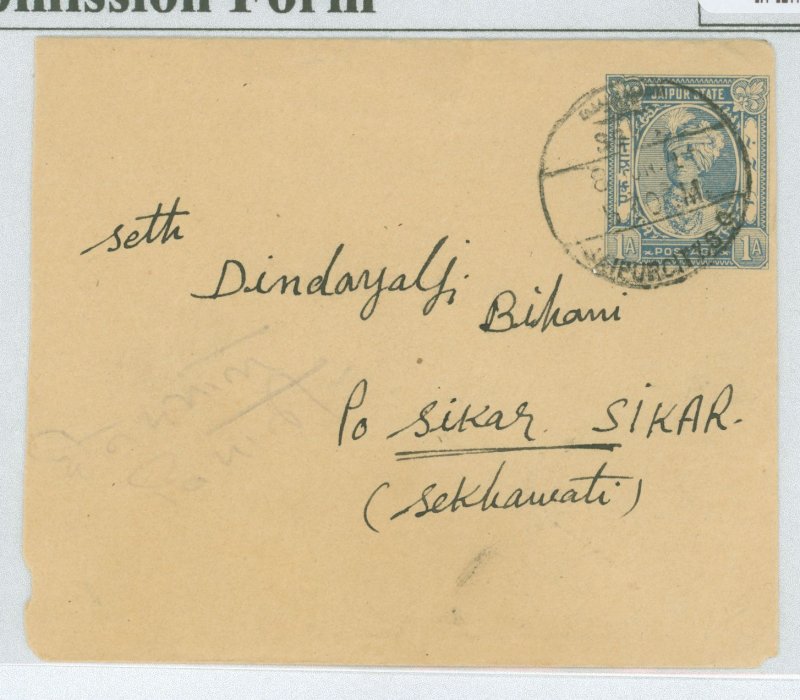 omission Form
JAIPUR STATE
एक आना
1A POSTAGE 1A
JAIPUR CITY S.O.
Seth
Dindayalji
Bihani
Po Sikar SIKAR.
(Sekhawati)